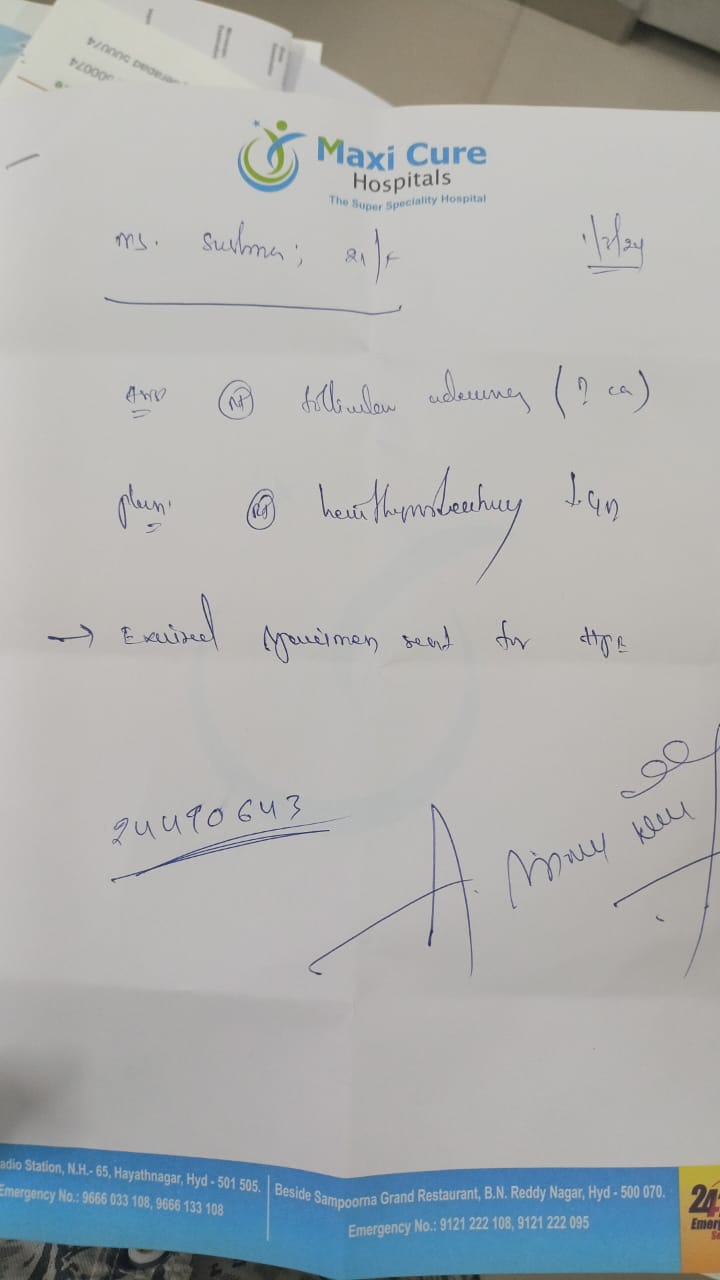 Hyderabad 500074
500074
Maxi Cure
Hospitals
The Super Speciality Hospital
Ms. Sushma; 21/F
1/2/24
Rt follicular adenoma (? ca)
plan: Rt hemithyroidectomy
→ Excised specimen sent for HPE
24490643
A.
adio Station, N.H.- 65, Hayathnagar, Hyd - 501 505.
Emergency No.: 9666 033 108, 9666 133 108
Beside Sampoorna Grand Restaurant, B.N. Reddy Nagar, Hyd - 500 070.
Emergency No.: 9121 222 108, 9121 222 095
24
Emer
Se